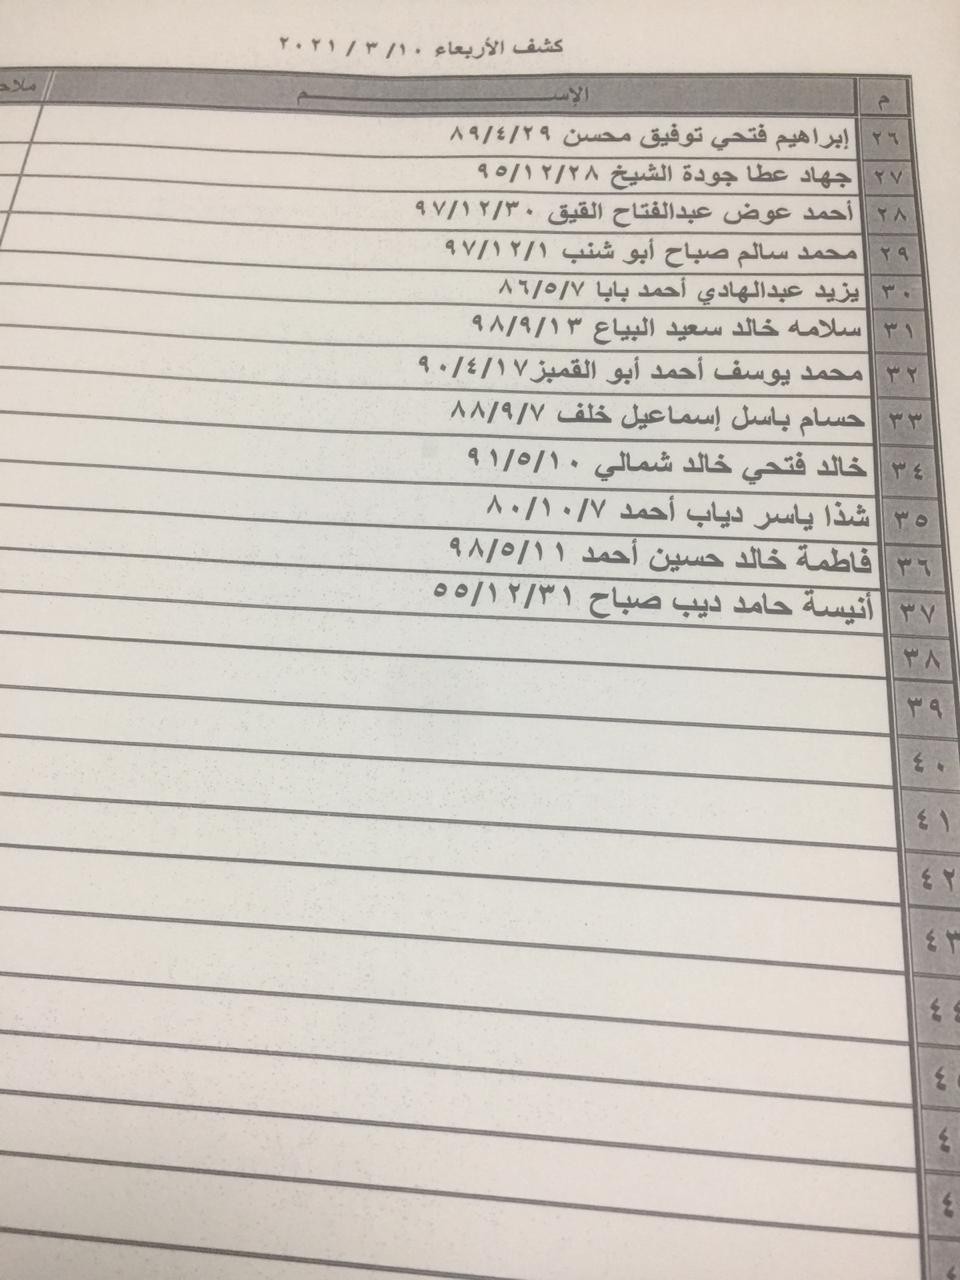 كشف الأربعاء ١٠/ ٣ / ٢٠٢١
م الإســــم
٢٦ إبراهيم فتحي توفيق محسن ٨٩/٤/٢٩
٢٧ جهاد عطا جودة الشيخ ٩٥/١٢/٢٨
٢٨ أحمد عوض عبدالفتاح القيق ٩٧/١٢/٣٠
٢٩ محمد سالم صباح أبو شنب ٩٧/١٢/١
٣٠ يزيد عبدالهادي أحمد بابا ٨٦/٥/٧
٣١ سلامه خالد سعيد البياع ٩٨/٩/١٣
٣٢ محمد يوسف أحمد أبو القمبز٩٠/٤/١٧
٣٣ حسام باسل إسماعيل خلف ٨٨/٩/٧
٣٤ خالد فتحي خالد شمالي ٩١/٥/١٠
٣٥ شذا ياسر دياب أحمد ٨٠/١٠/٧
٣٦ فاطمة خالد حسين أحمد ٩٨/٥/١١
٣٧ أنيسة حامد ديب صباح ٥٥/١٢/٣١
٣٨
٣٩
٤٠
٤١
٤٢
٤٣
٤٤